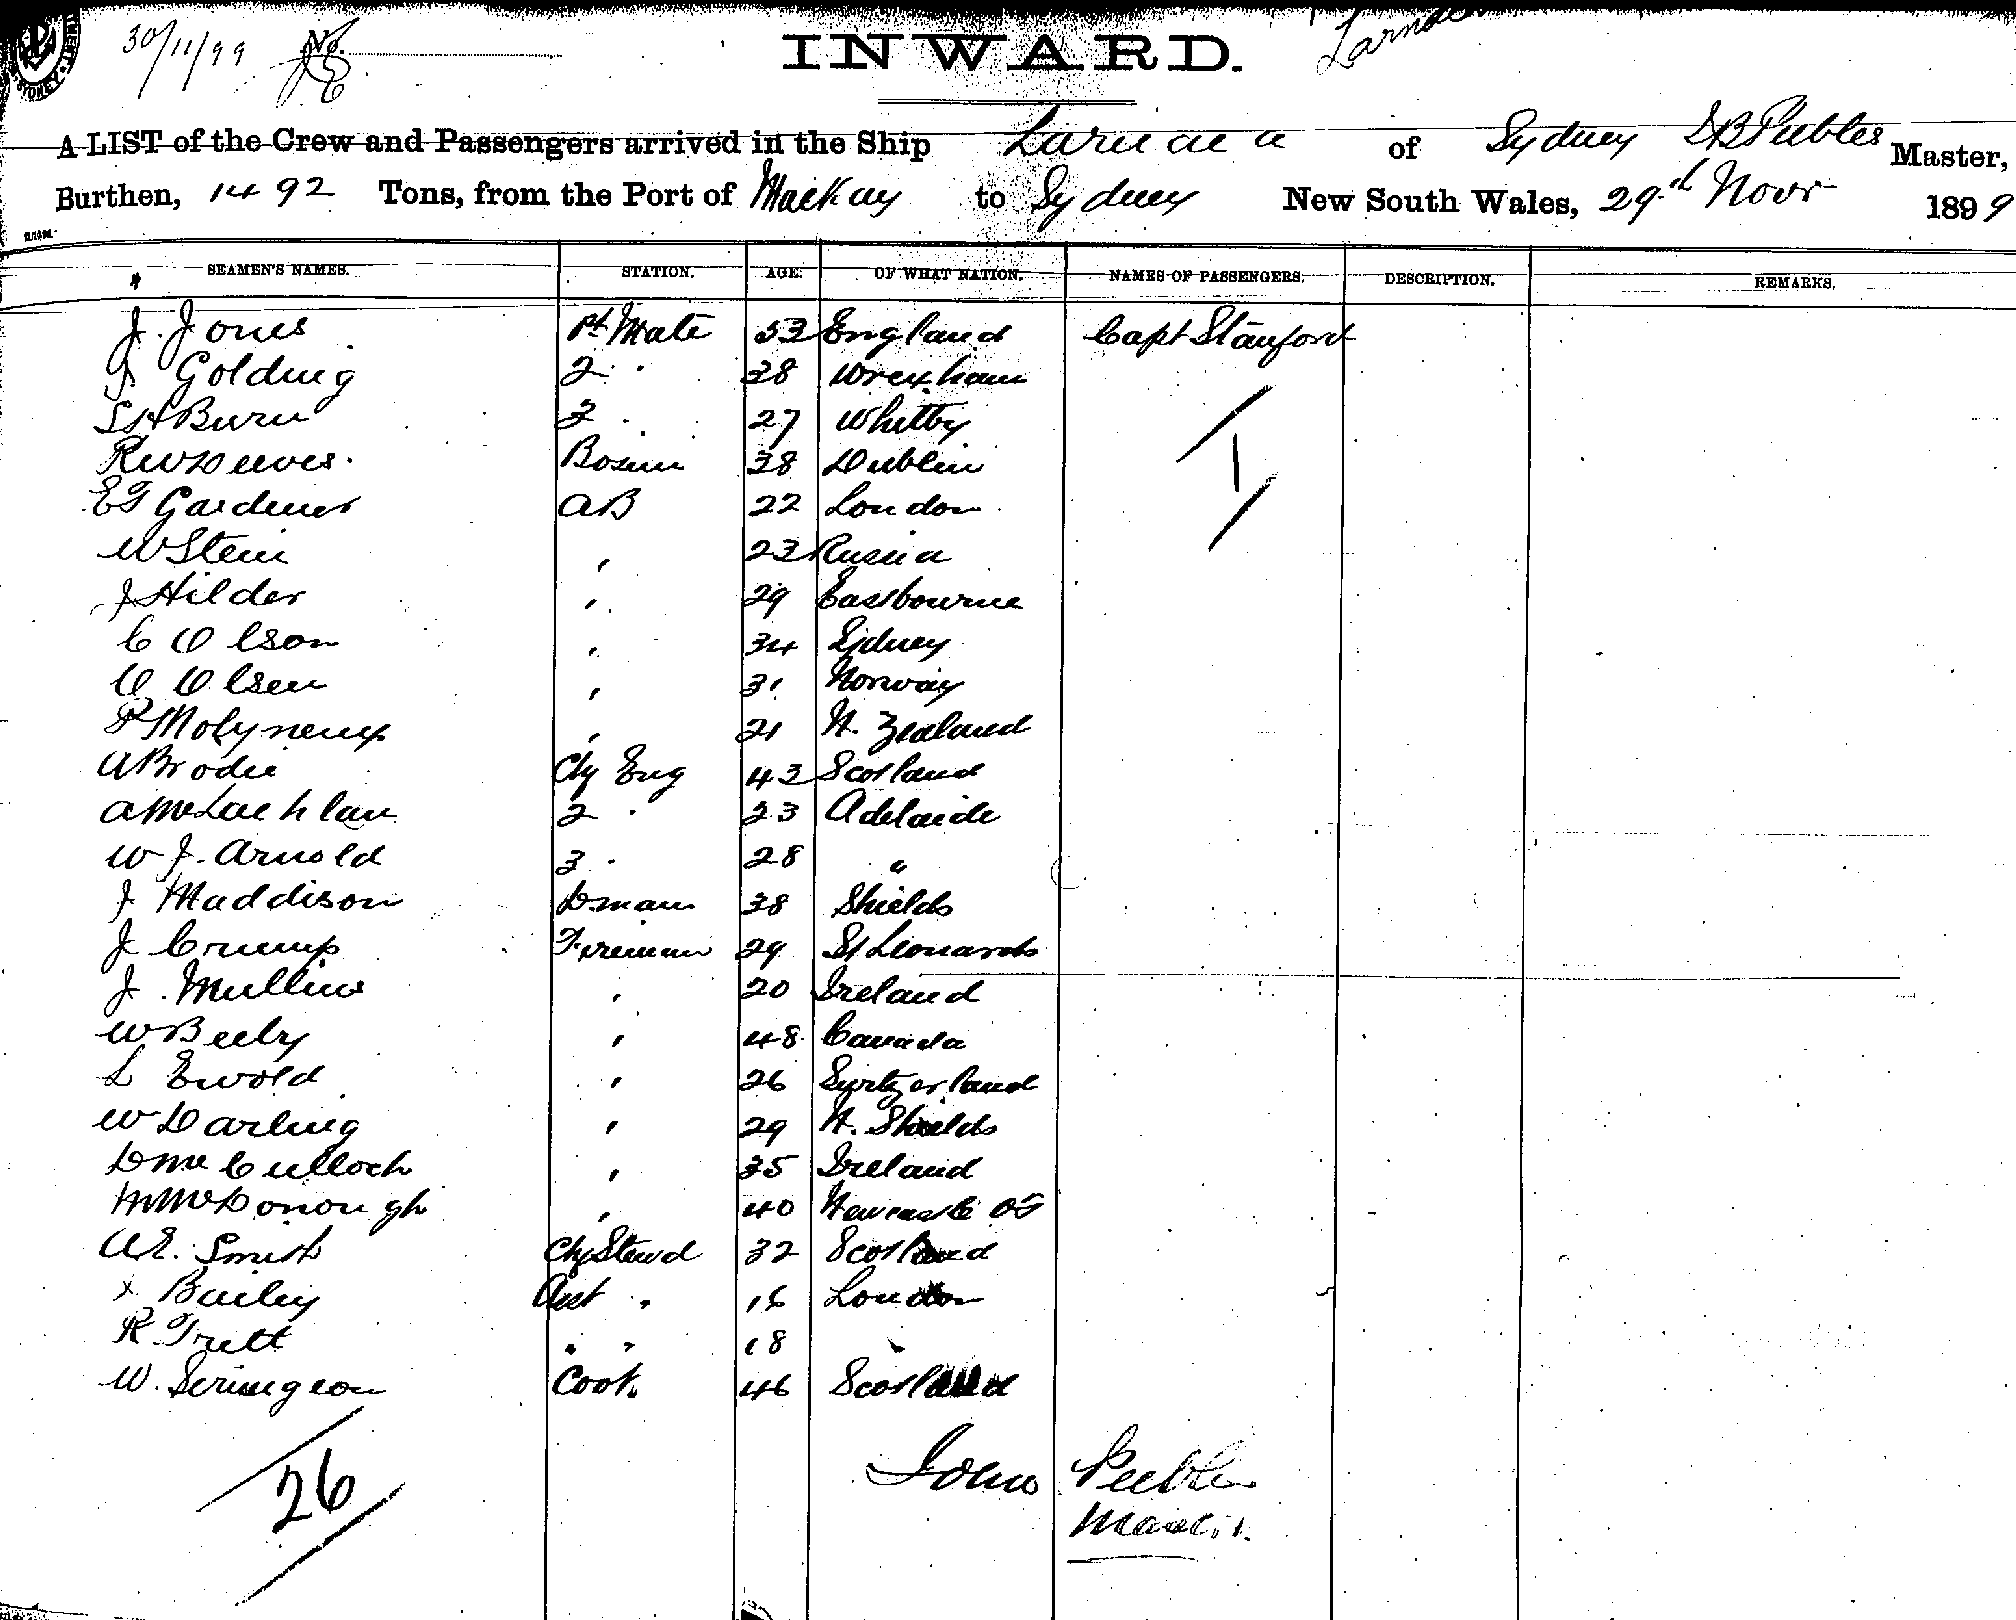 30/11/99 No.
INWARD.
A LIST of the Crew and Passengers arrived in the Ship Larnaca of Sydney Peebles Master,
Burthen, 1492 Tons, from the Port of Mackay to Sydney New South Wales, 29th Novr 1899
SEAMEN'S NAMES. STATION. AGE. OF WHAT NATION. NAMES OF PASSENGERS. DESCRIPTION. REMARKS.
J. Jones 1st Mate 53 England Capt Stanford
Golding 2 " 38 Wrexham
S H Burn 27 Whitby
R W Deeves Bosun 38 Dublin
E F Gardener AB 22 London
W Stein , 23 Russia
J Hilder , 29 Eastbourne
C Olson , 34 Sydney
O Olsen , 31 Norway
P Molyneux , 21 N. Zealand
A Brodie Chf Eng 43 Scotland
A McLachlan 2 " 23 Adelaide
W J. Arnold 3 " 28 "
J Maddison Dman 38 Shields
J Crump Fireman 29 St Leonards
J. Mullins , 20 Ireland
W Beeby , 48 Canada
L Ewold , 26 Switzerland
W Darling , 29 N. Shields
D McCulloch , 35 Ireland
M McDonough , 40 Newcastle
A E. Smith Chf Stewd 32 Scotland
Bailey Asst " 16 London
R Trett " " 18 "
W. Scrimgeon Cook 46 Scotland
1
26
Peebles
Master